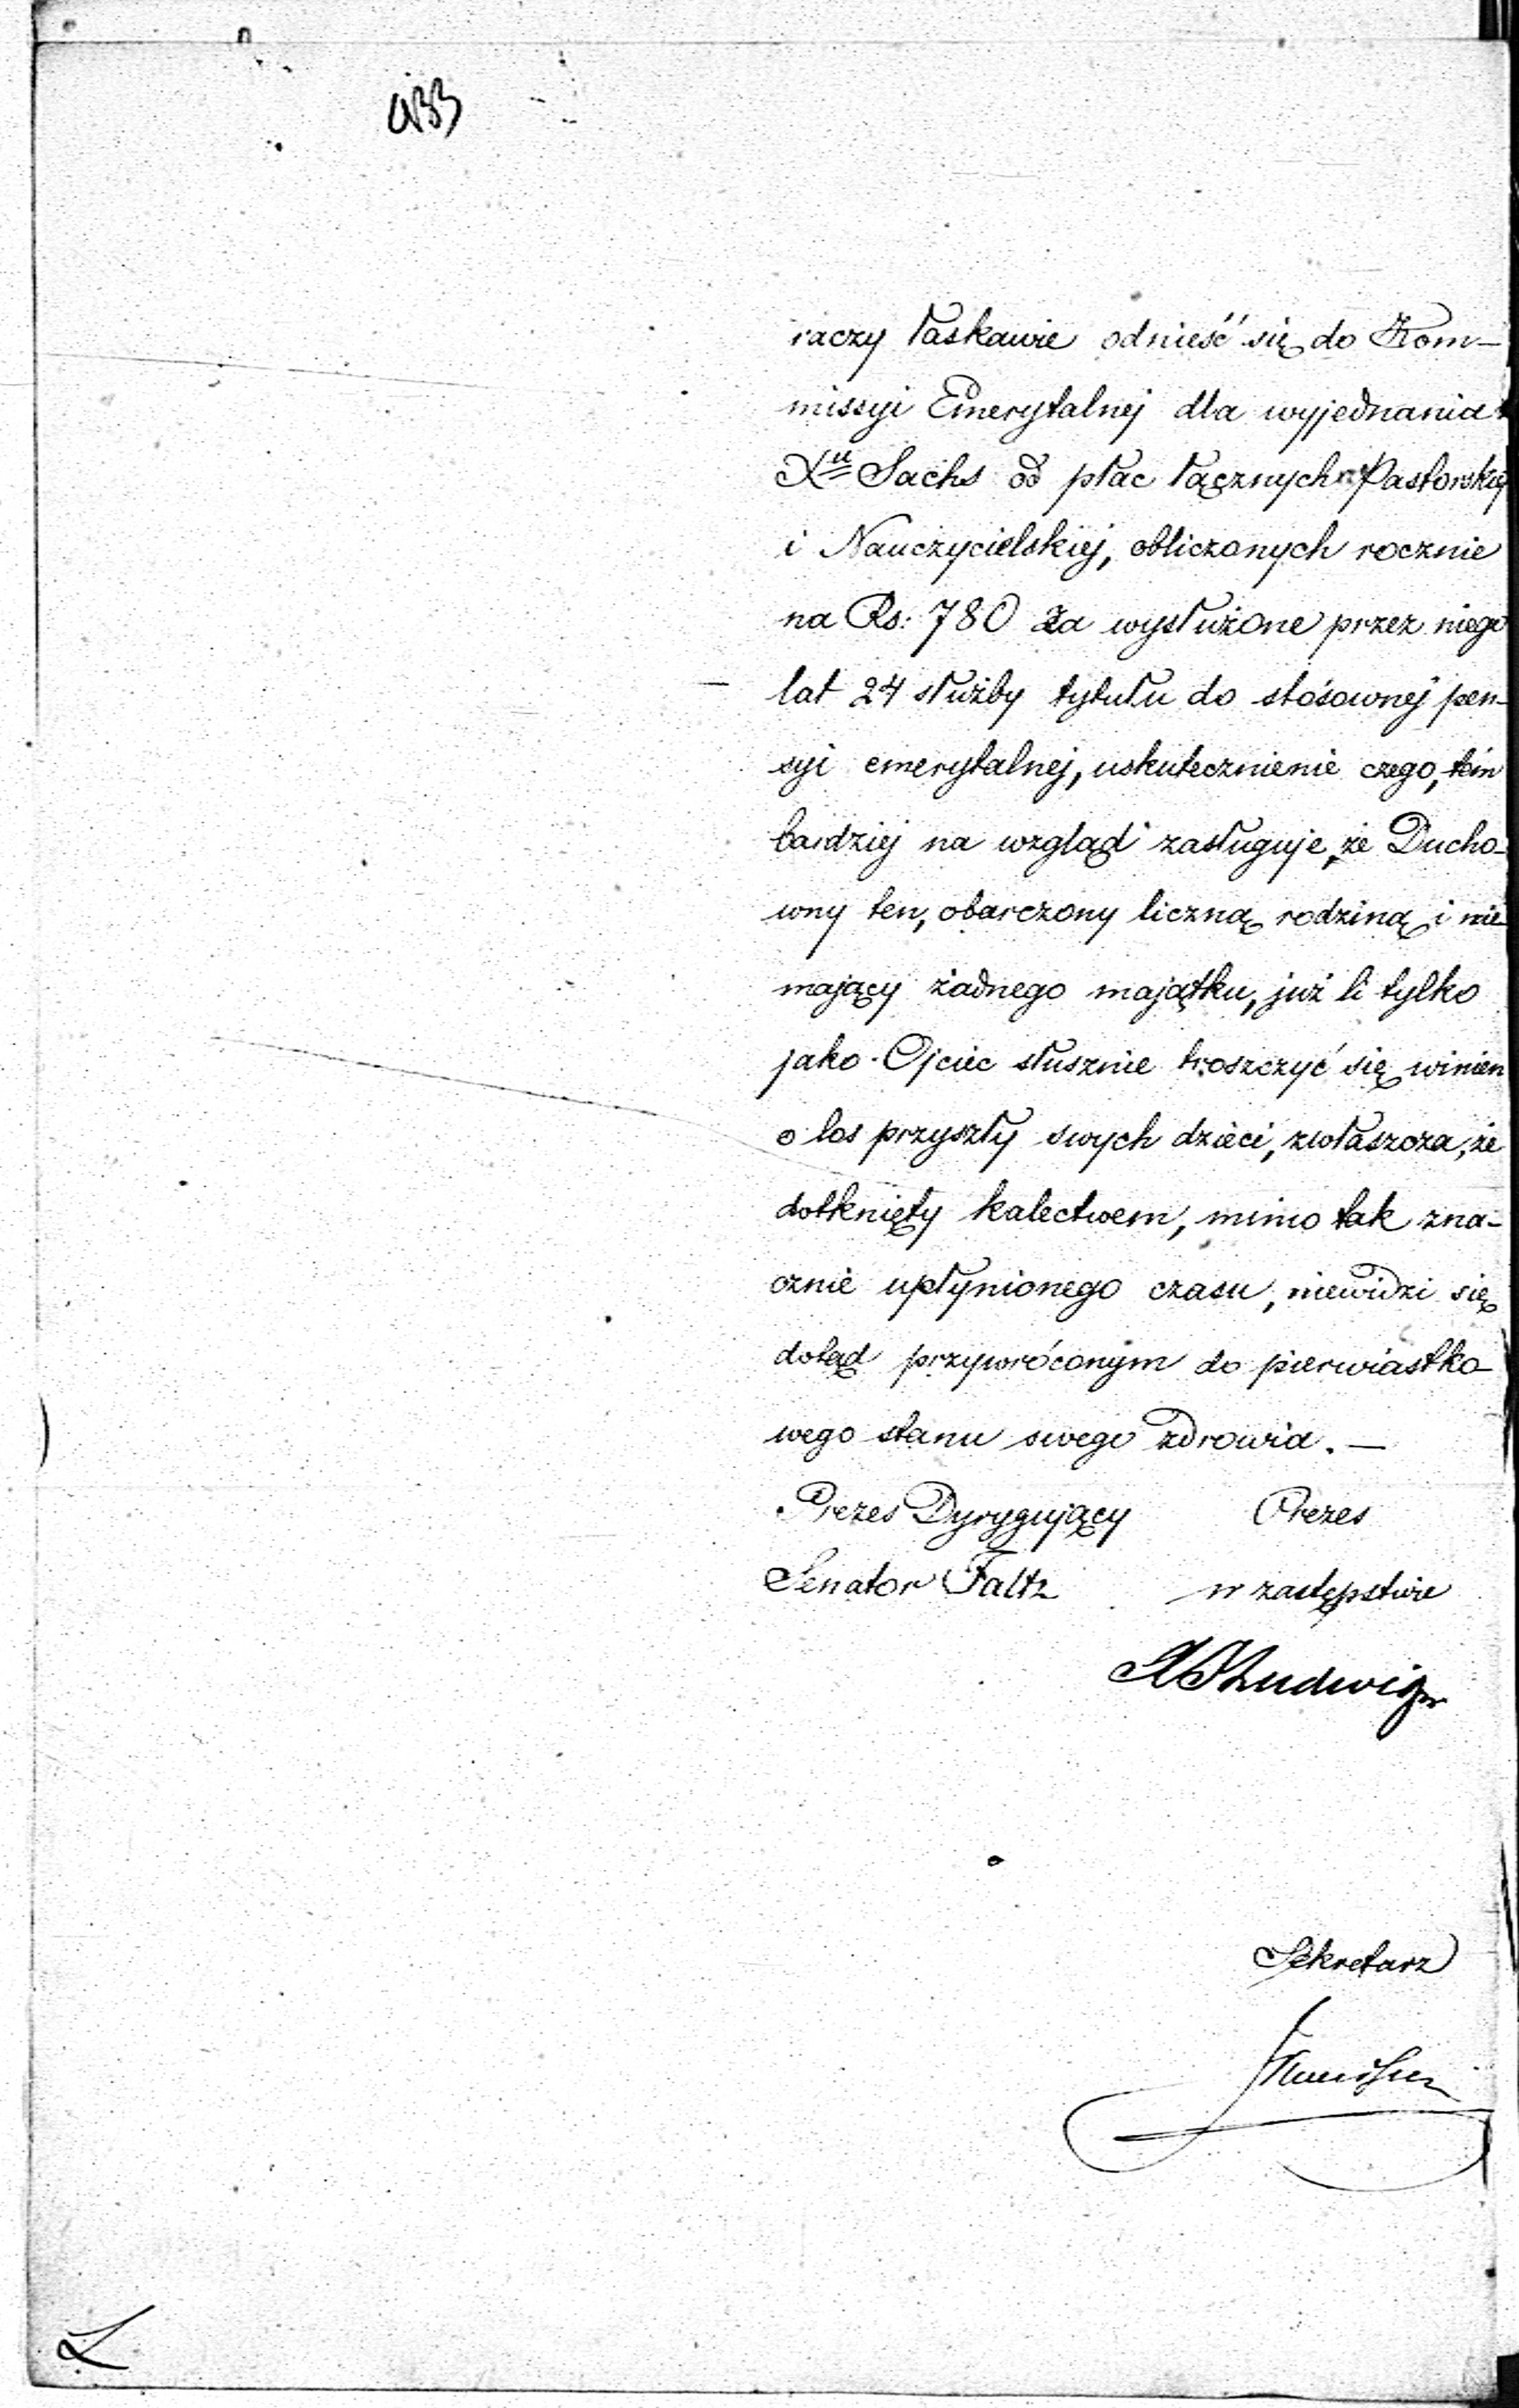 433
raczy łaskawie odnieść się do Kom-
missyi Emerytalnej dla wyjednania
Xu Sachs od płac łącznych Pastorskiej
i Nauczycielskiej, obliczonych rocznie
na Rs: 780 za wysłużone przez niego
lat 24 służby tytułu do stósownej pen-
syi emerytalnej, uskutecznienie czego, tém
bardziej na wzgląd zasługuje, że Ducho-
wny ten, obarczony liczną rodziną i nie
mający żadnego majątku, już li tylko
jako Ojciec słusznie troszczyć się winien
o los przyszły swych dzieci, zwłaszcza, że
dotknięty kalectwem, mimo tak zna-
cznie upłynionego czasu, niewidzi się
dotąd przywróconym do pierwiastko-
wego stanu swego zdrowia. —
Prezes Dyrygujący Prezes
Senator Faltz w zastępstwie
Ludwig
Sekretarz